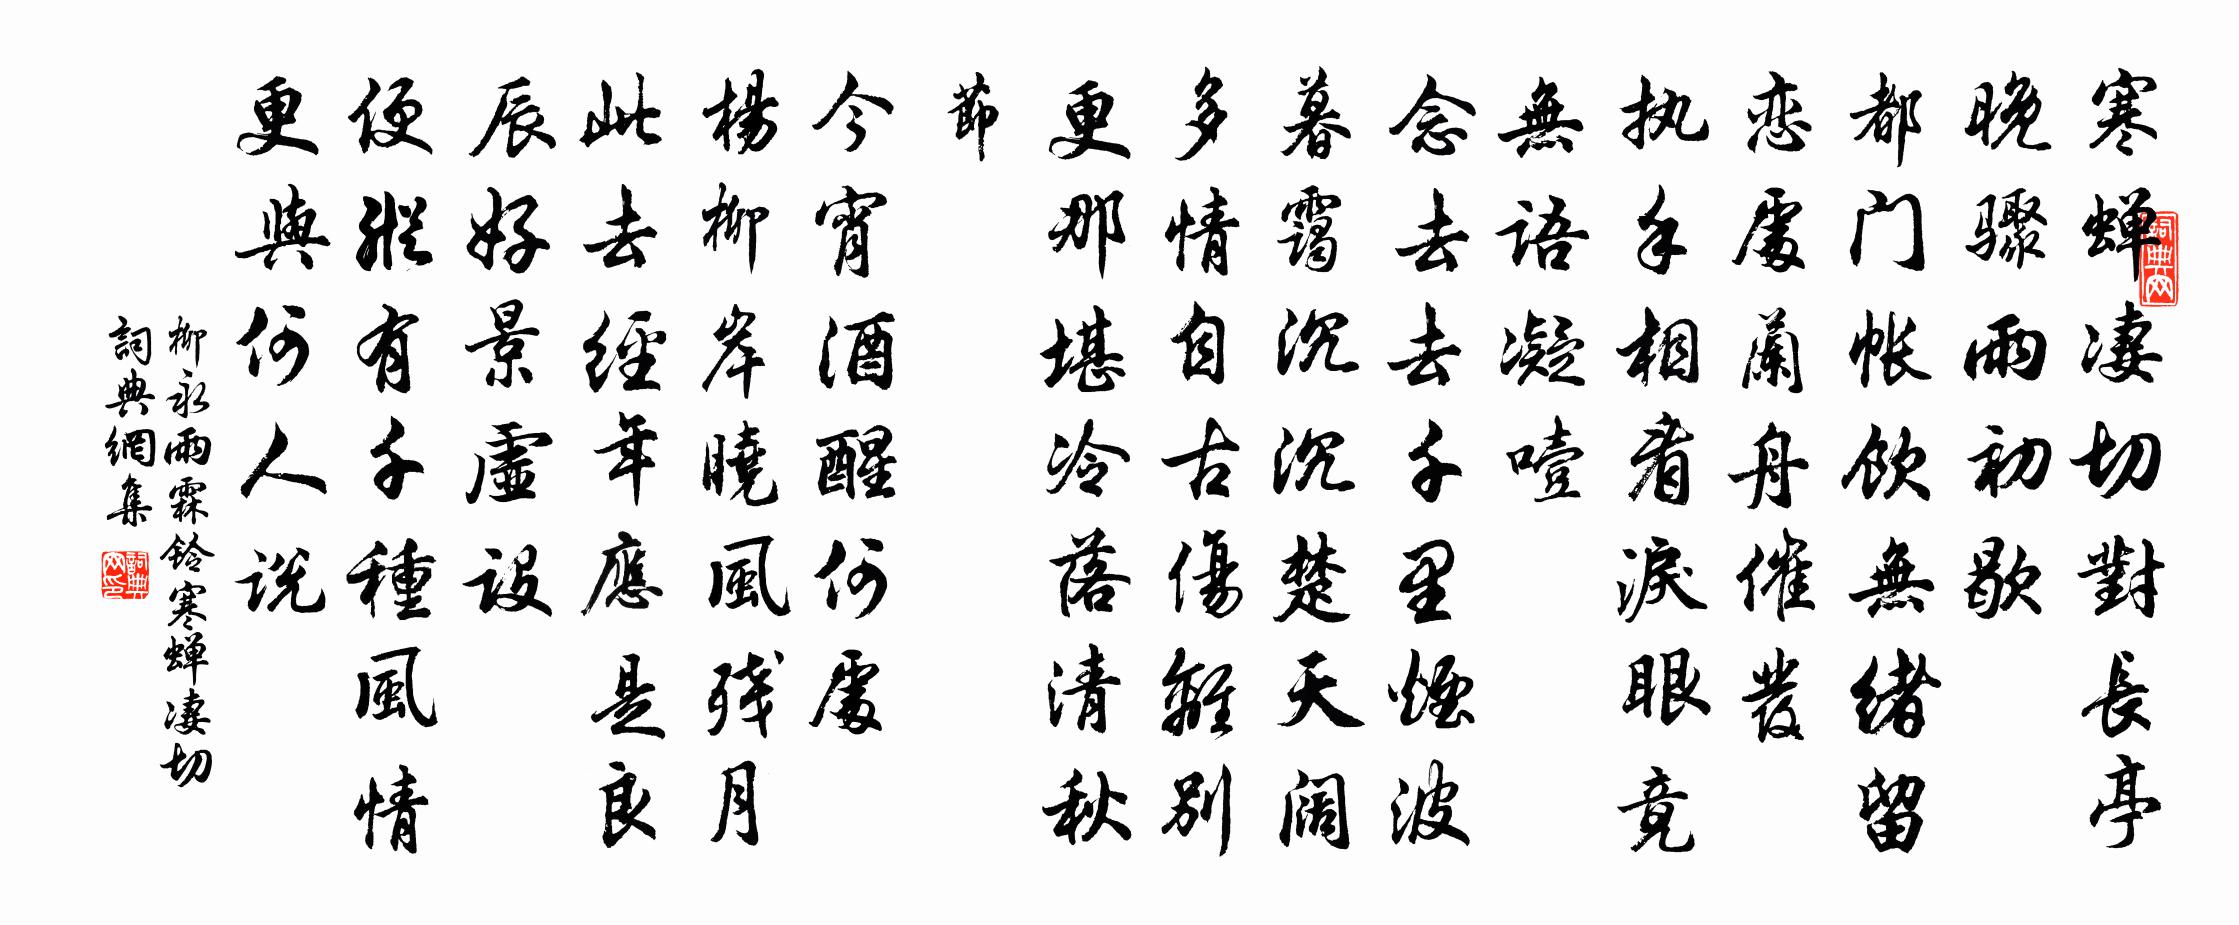 寒蝉凄切對長亭
晚驟雨初歇
都门帐飲無緒留
恋處蘭舟催發
执手相看淚眼竟
無語凝噎
念去去千里煙波
暮靄沉沉楚天阔
多情自古傷離别
更那堪冷落清秋
節
今宵酒醒何處
楊柳岸曉風残月
此去經年應是良
辰好景虛設
便縱有千種風情
更與何人説
柳永雨霖鈴寒蝉凄切
詞典網集
詞典网
詞典网印